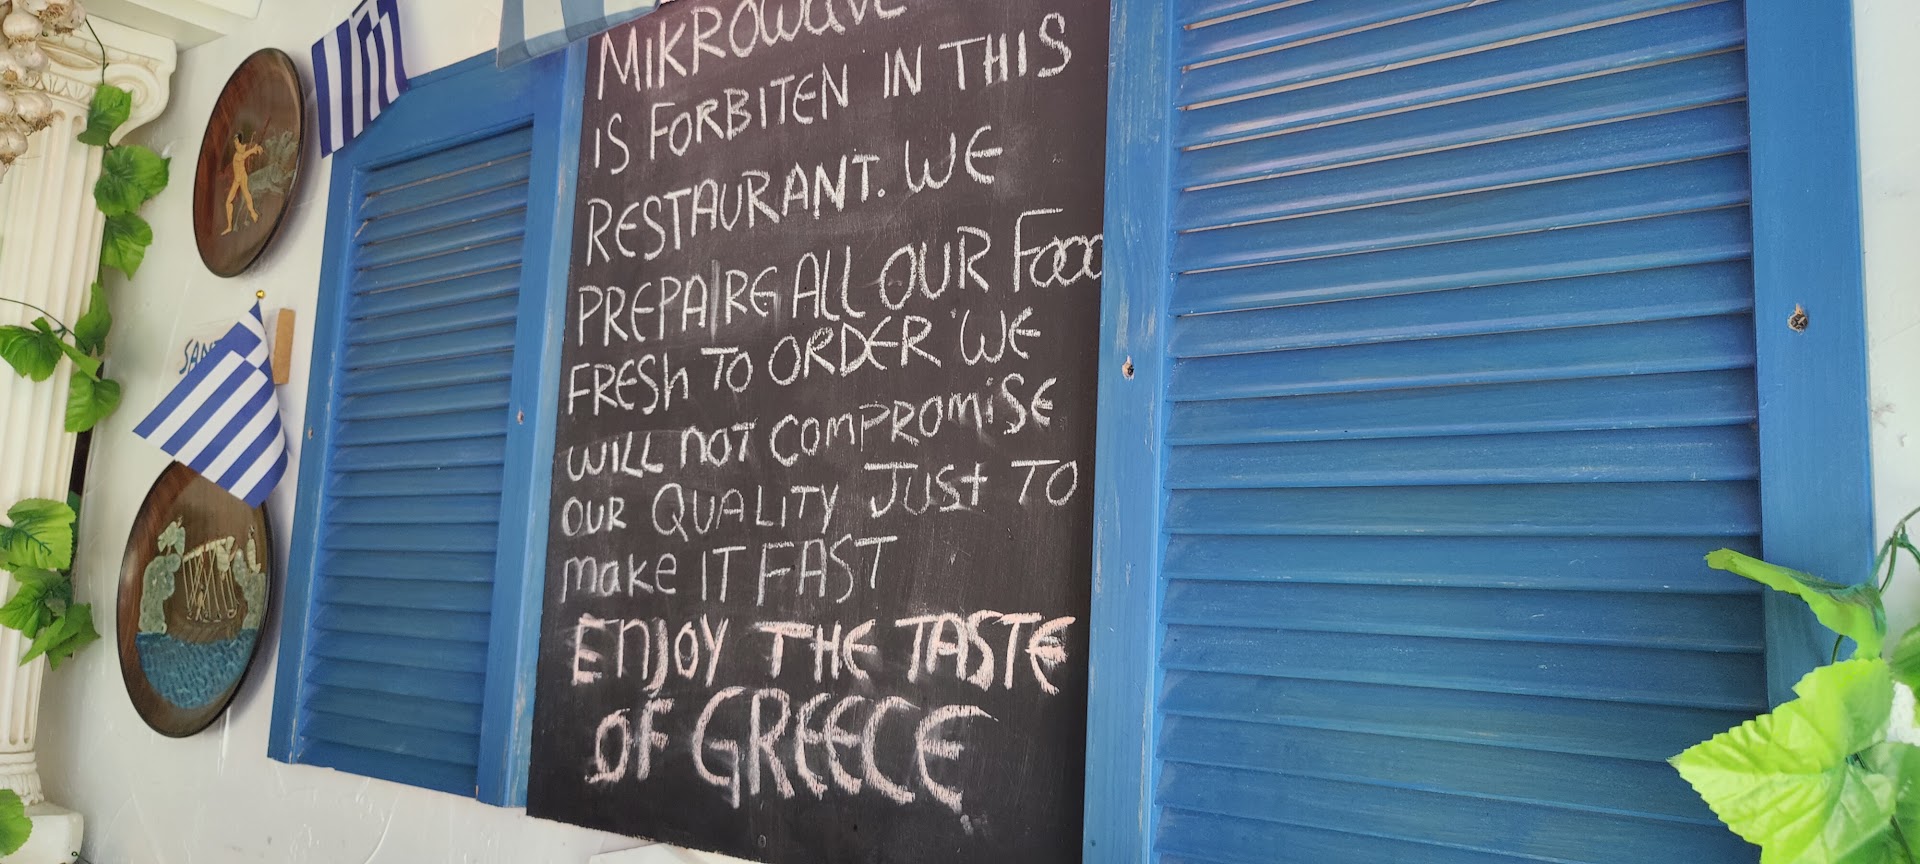 MIKROWAVE
IS FORBITEN IN THIS
RESTAURANT. WE
PREPAIRE ALL OUR FOOD
FRESH TO ORDER WE
WILL NOT COMPROMISE
OUR QUALITY JUST TO
make IT FAST
ENJOY THE TASTE
OF GREECE